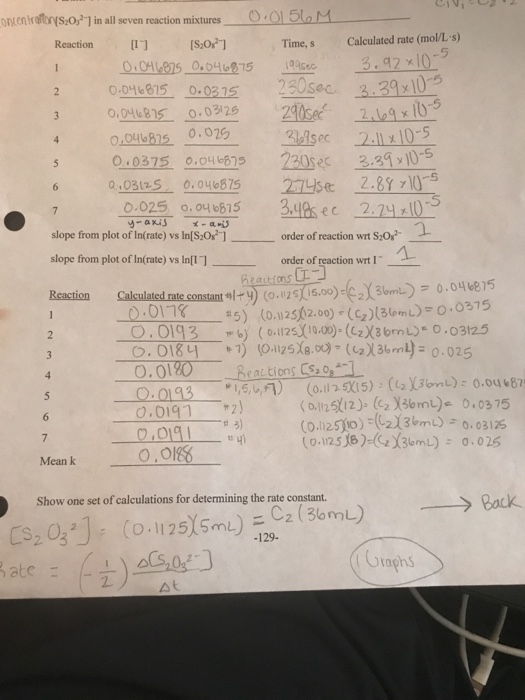 [S₂O₃²⁻] in all seven reaction mixtures 0.0156M
Reaction [I⁻] [S₂O₈²⁻] Time, s Calculated rate (mol/L·s)
1 0.046875 0.046875 199sec 3.92 x 10⁻⁵
2 0.046875 0.0375 230sec 3.39 x 10⁻⁵
3 0.046875 0.03125 290sec 2.69 x 10⁻⁵
4 0.046875 0.025 369sec 2.11 x 10⁻⁵
5 0.0375 0.046875 230sec 3.39 x 10⁻⁵
6 0.03125 0.046875 274sec 2.84 x 10⁻⁵
7 0.025 0.046875 3.48sec 2.24 x 10⁻⁵
y-axis x-axis
slope from plot of ln(rate) vs ln[S₂O₈²⁻] order of reaction wrt S₂O₈²⁻ 1
slope from plot of ln(rate) vs ln[I⁻] order of reaction wrt I⁻ 1
Reactions [I⁻]
Reaction Calculated rate constant #1-4) (0.1125)(15.00)=(C₂)(36mL) = 0.046875
1 0.0178 #5) (0.1125)(12.00)=(C₂)(36mL)=0.0375
2 0.0193 #6) (0.1125)(10.00)=(C₂)(36mL)=0.03125
3 0.0184 #7) (0.1125)(8.00)=(C₂)(36mL)=0.025
4 0.0180 Reactions [S₂O₈²⁻]
5 0.0193 #1,5,6,#7) (0.1125)(15)=(C₂)(36mL)=0.04687
6 0.0197 #2) (0.1125)(12)=(C₂)(36mL)=0.0375
7 0.0191 #3) (0.1125)(10)=(C₂)(36mL)=0.03125
Mean k 0.0188 #4) (0.1125)(8)=(C₂)(36mL)=0.025
Show one set of calculations for determining the rate constant. → Back
[S₂O₃²⁻] = (0.1125)(5mL) = C₂(36mL)
-129-
Rate = (-1/2) Δ[S₂O₃²⁻]/Δt
Graphs